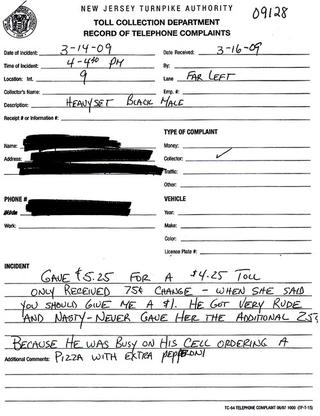 NEW JERSEY TURNPIKE AUTHORITY
09128
TOLL COLLECTION DEPARTMENT
RECORD OF TELEPHONE COMPLAINTS
Date of Incident: 3-14-09 Date Received: 3-16-09
Time of Incident: 4-4:40 PM By:
Location: Int. 9 Lane FAR LEFT
Collector's Name: Emp. #:
Description: HEAVYSET BLACK MALE
Receipt # or Information #:
TYPE OF COMPLAINT
Name: Money:
Address: Collector: ✓
Traffic:
Other:
PHONE # VEHICLE
Year:
Work: Make:
Color:
License Plate #:
INCIDENT
GAVE $5.25 FOR A $4.25 TOLL
ONLY RECEIVED 75¢ CHANGE - WHEN SHE SAID
YOU SHOULD GIVE ME A $1. HE GOT VERY RUDE
AND NASTY - NEVER GAVE HER THE ADDITIONAL 25¢
BECAUSE HE WAS BUSY ON HIS CELL ORDERING A
Additional Comments: PIZZA WITH EXTRA PEPPERONI